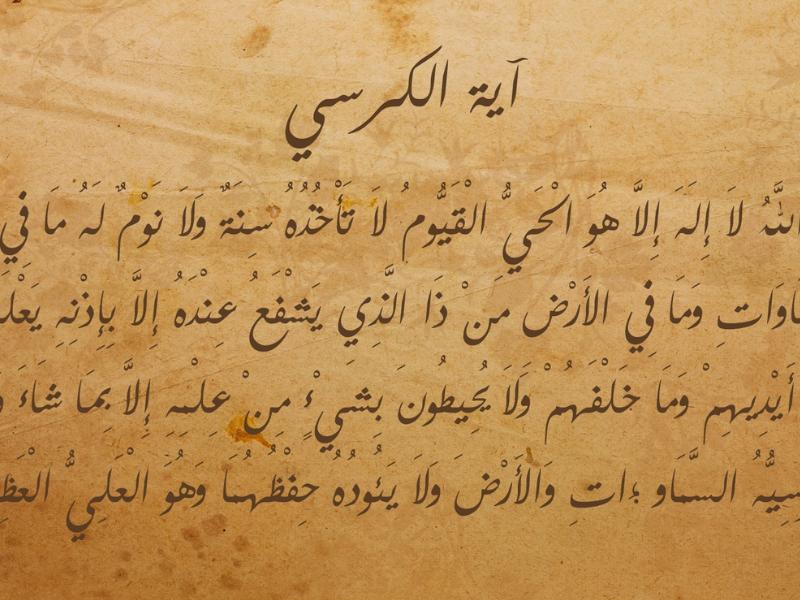 آية الكرسي
اللهُ لاَ إِلَهَ إِلاَّ هُوَ الْحَيُّ الْقَيُّومُ لاَ تَأْخُذُهُ سِنَةٌ وَلاَ نَوْمٌ لَهُ مَا فِي
وَمَا فِي الأَرْضِ مَنْ ذَا الَّذِي يَشْفَعُ عِنْدَهُ إِلاَّ بِإِذْنِهِ
أَيْدِيهِمْ وَمَا خَلْفَهُمْ وَلاَ يُحِيطُونَ بِشَيْءٍ مِنْ عِلْمِهِ إِلاَّ بِمَا شَاءَ
السَّمَاو ؛اتِ وَالأَرْضَ وَلاَ يَئُودُهُ حِفْظُهُمَا وَهُوَ الْعَلِيُّ